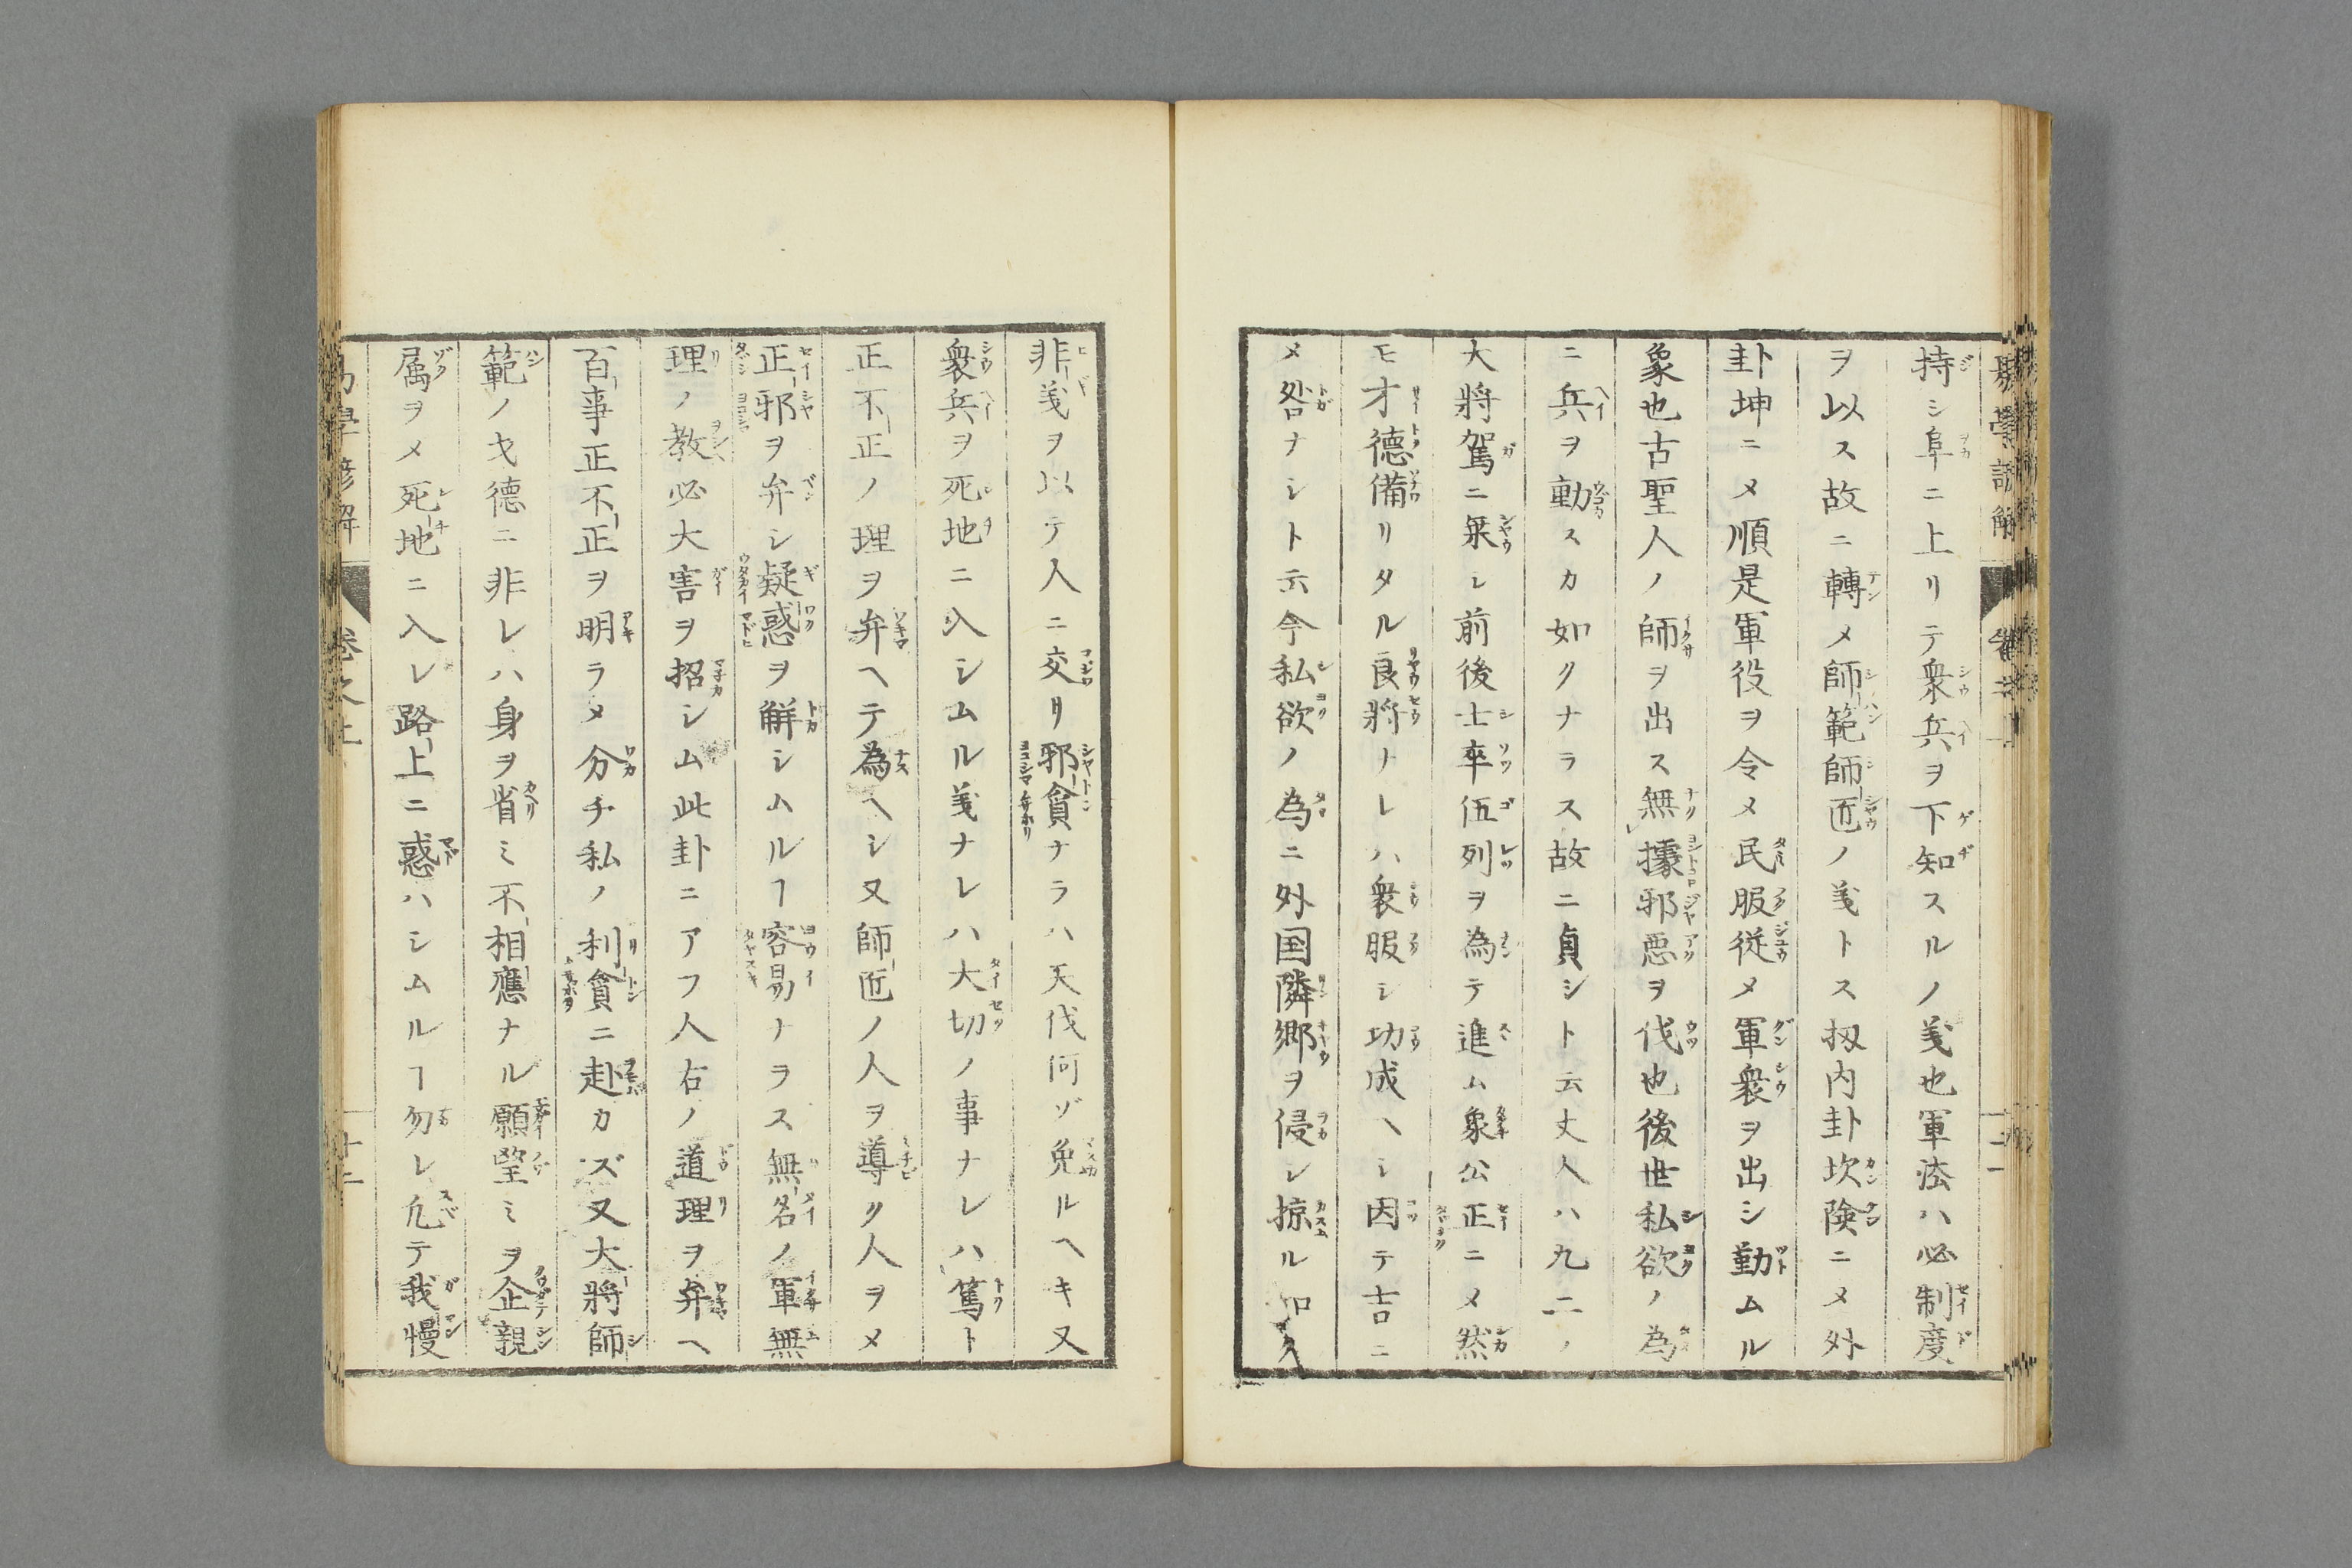 持シ阜ニ上リテ衆兵ヲ下知スルノ義也軍法ハ必制度
ヲ以ス故ニ轉メ師範師匠ノ義トス扨内卦坎険ニメ外
卦坤ニメ順是軍役ヲ令メ民服従メ軍衆ヲ出シ勤ムル
象也古聖人ノ師ヲ出ス無據邪悪ヲ伐也後世私欲ノ為
ニ兵ヲ動スカ如クナラス故ニ貞シト云丈人ハ九二ノ
大將駕ニ乗レ前後士卒伍列ヲ為テ進ム象公正ニメ然
モ才德備リタル良將ナレハ衆服シ功成ヘシ因テ吉ニ
メ咎ナシト云今私欲ノ為ニ外国隣郷ヲ侵シ掠ル如ク
非義ヲ以テ人ニ交リ邪貪ナラハ天伐何ゾ免ルヘキ又
衆兵ヲ死地ニ入シムル義ナレハ大切ノ事ナレハ篤ト
正不正ノ理ヲ弁ヘテ為ヘシ又師匠ノ人ヲ導ク人ヲメ
正邪ヲ弁シ疑惑ヲ解シムルヿ容易ナラス無名ノ軍無
理ノ教必大害ヲ招シム此卦ニアフ人右ノ道理ヲ弁ヘ
百事正不正ヲ明ラメ分チ私ノ利貪ニ赴カズ又大將師
範ノ才德ニ非レハ身ヲ省ミ不相應ナル願望ミヲ企親
属ヲメ死地ニ入レ路上ニ惑ハシムルヿ勿レ凢テ我慢
易學諺解 卷之上